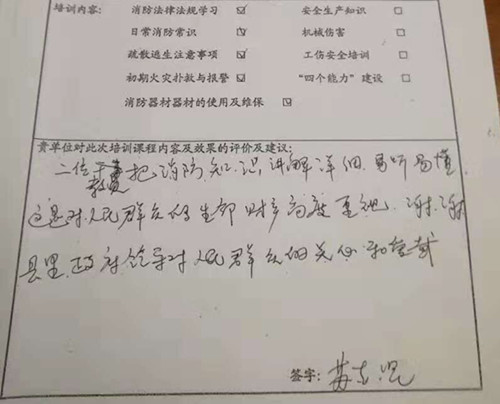 培训内容: 消防法律法规学习 ☑ 安全生产知识 □
日常消防常识 ☑ 机械伤害 □
疏散逃生注意事项 ☑ 工伤安全培训 □
初期火灾扑救与报警 ☑ “四个能力”建设 □
消防器材器材的使用及维保 ☑
贵单位对此次培训课程内容及效果的评价及建议:
二位教员把消防知识讲解详细,易听易懂,
这是对人民群众的生命财产高度重视,谢谢
县里政府领导对人民群众的关心和
签字: